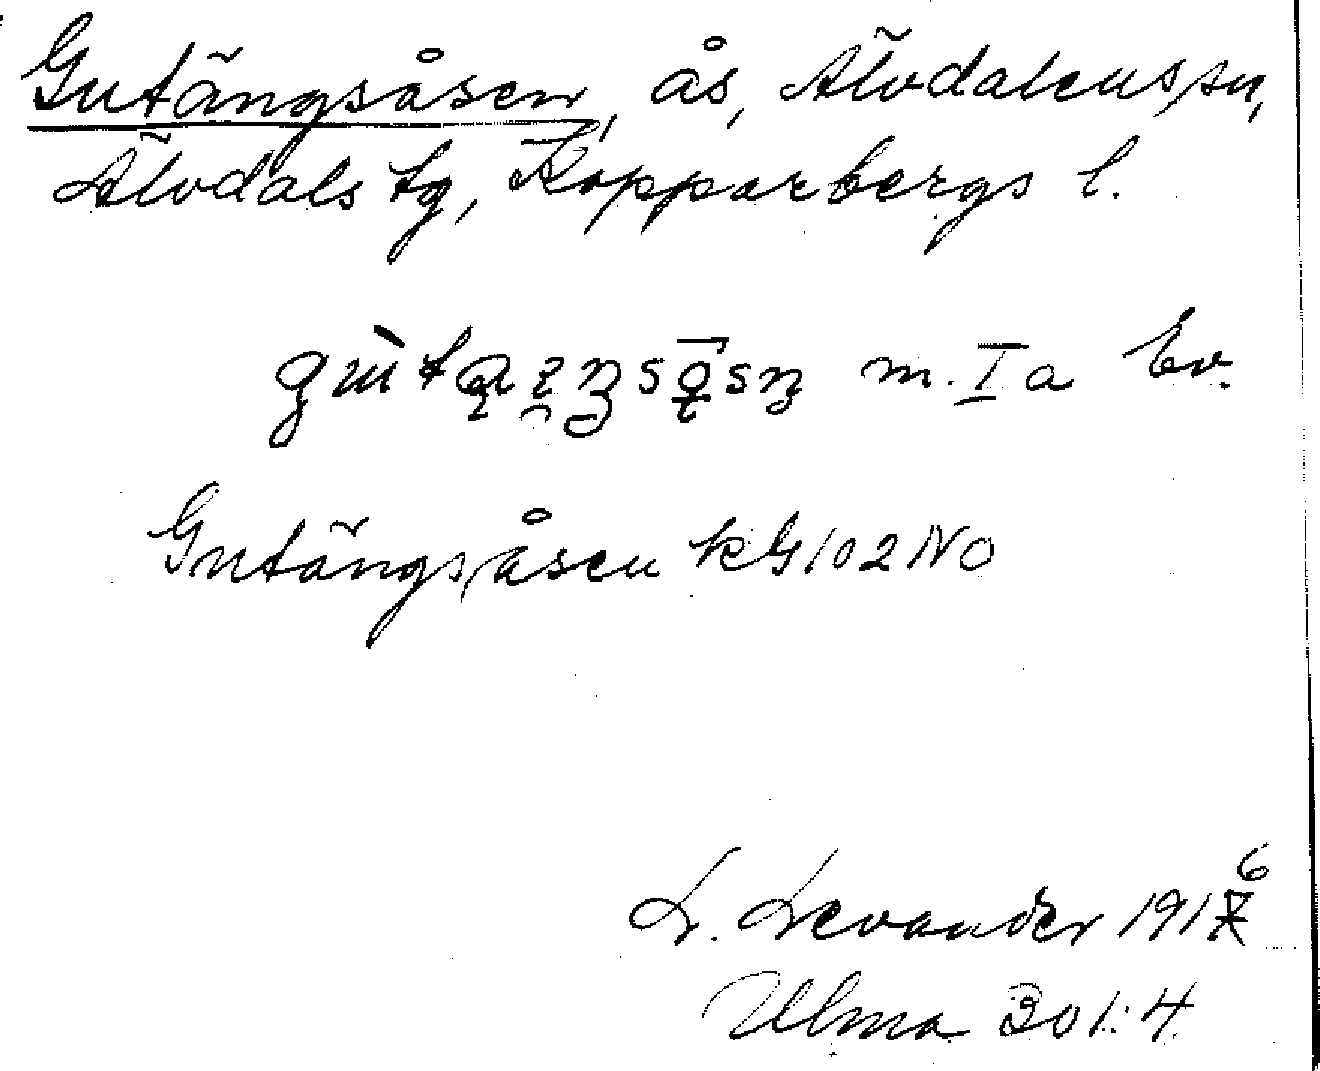 Gutängsåsen, ås, Älvdalens sn,
Älvdals tg, Kopparbergs l.
m. I a Ev.
Gutängsåsen kG102NO
L. Levander 1916
Ulma 301:4